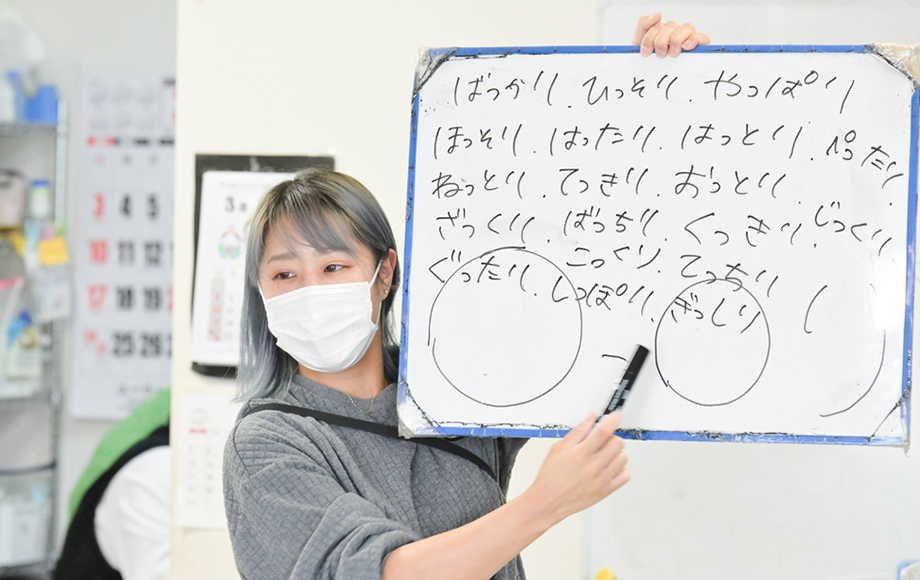 ばっかり.ひっそり.やっぱり
ほっそり.ばったり.はっとり.ぺったり.
ねっとり.てっきり.おっとり
ざっくり.ばっちり.くっきり.じっくり
ぐったり.こっくり.てっちり
しっぽり.ぎっしり
3
3 4 5
10 11 12
17 18 19
25 26